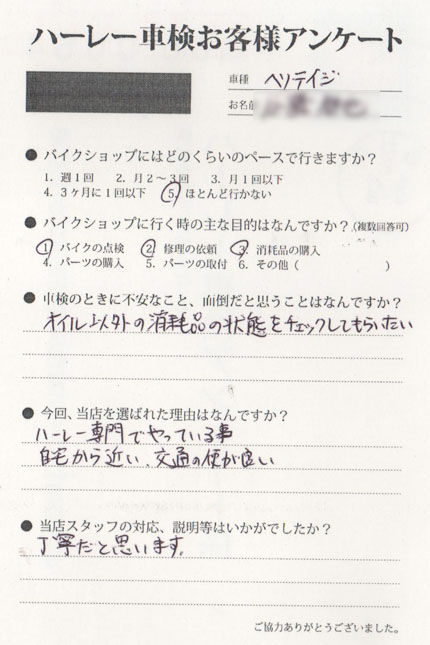 ハーレー車検お客様アンケート
車種 ヘリテイジ
お名前
● バイクショップにはどのくらいのペースで行きますか？
1. 週1回 2. 月2～3回 3. 月1回以下
4. 3ヶ月に1回以下 5. ほとんど行かない
● バイクショップに行く時の主な目的はなんですか？(複数回答可)
1. バイクの点検 2. 修理の依頼 3. 消耗品の購入
4. パーツの購入 5. パーツの取付 6. その他（ ）
● 車検のときに不安なこと、面倒だと思うことはなんですか？
オイル以外の消耗品の状態をチェックしてもらいたい
● 今回、当店を選ばれた理由はなんですか？
ハーレー専門でやっている事
自宅から近い、交通の便が良い
● 当店スタッフの対応、説明等はいかがでしたか？
丁寧だと思います。
ご協力ありがとうございました。